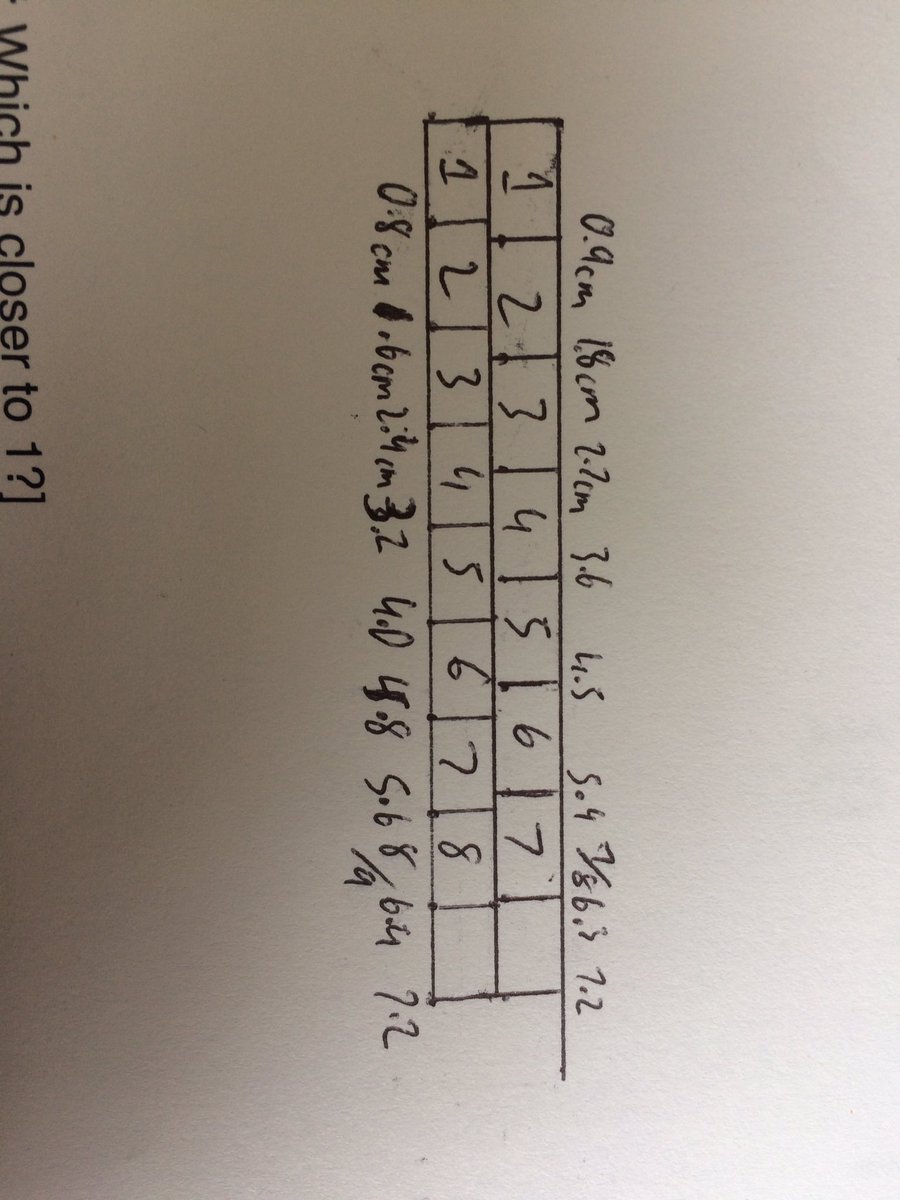 0.9cm 1.8cm 2.7cm 3.6 4.5 5.4 7/8 6.3 7.2
1 2 3 4 5 6 7
1 2 3 4 5 6 7 8
0.8cm 1.6cm 2.4cm 3.2 4.0 4.8 5.6 8/9 6.4 7.2
Which is closer to 1?]